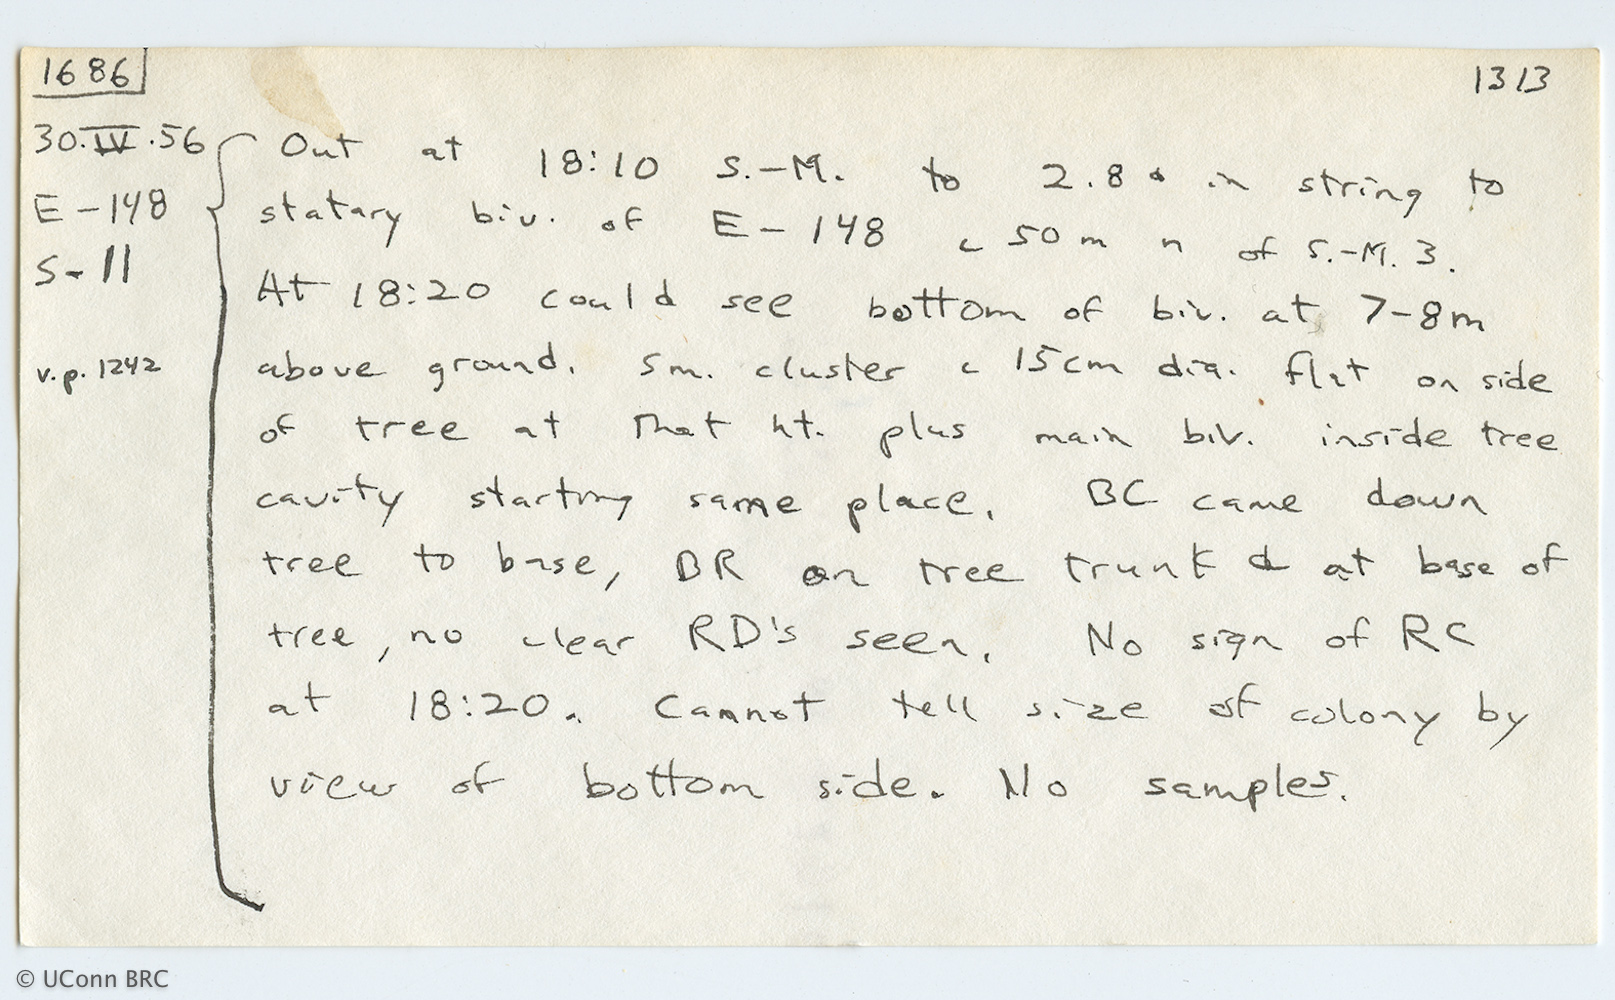 1686
1313
30.IV.56
E-148
S-11
v.p. 1242
Out at 18:10 S.-M. to 2.8 & in string to
statary biv. of E-148 c 50m n of S.-M. 3.
At 18:20 could see bottom of biv. at 7-8m
above ground. Sm. cluster c 15cm dia. flat on side
of tree at that ht. plus main biv. inside tree
cavity starting same place. BC came down
tree to base, BR on tree trunk & at base of
tree, no clear RD's seen. No sign of RC
at 18:20. Cannot tell size of colony by
view of bottom side. No samples.
© UConn BRC